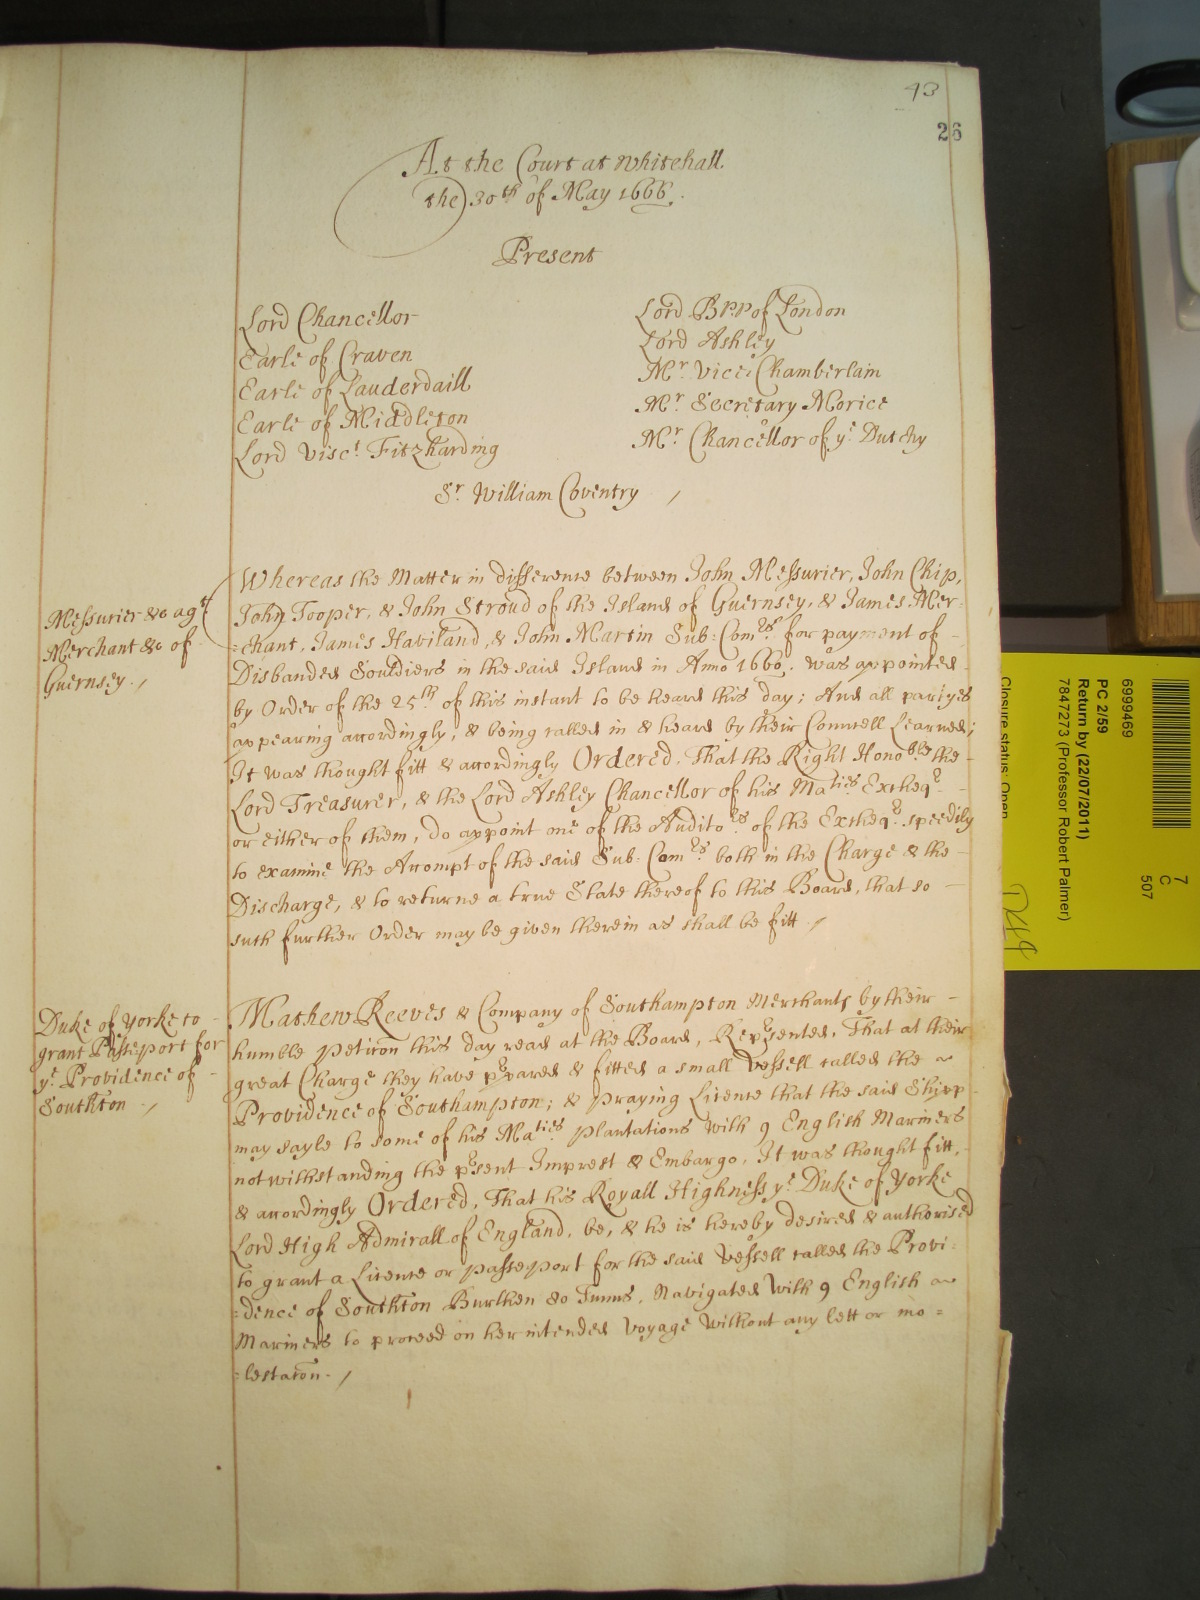 43
26
At the Court at Whitehall.
the 30th of May 1666.
Present
Lord Chancellor
Earle of Craven
Earle of Lauderdaill
Earle of Middleton
Lord Visct. Fitzharding
Lord Bpp of London
Lord Ashley
Mr. Vice Chamberlain
Mr. Secretary Morice
Mr. Chancellor of ye Dutchy
Sr. William Coventry
Messurier &c agt
Merchant &c of
Guernsey.
Whereas the Matter in difference between John Messurier, John Chip,
John Tooper, & John Stroud of the Island of Guernsey, & James Mer-
=chant, James Haviland, & John Martin Sub-Comrs. for payment of
Disbanded Souldiers in the said Island in Anno 1660. was appointed
by Order of the 25th of this instant to be heard this day; And all partyes
appearing accordingly, & being called in & heard by their Councell Learned;
It was thought fitt & accordingly Ordered, That the Right Honoble the
Lord Treasurer, & the Lord Ashley Chancellor of his Maties Excheqr.
or either of them, do appoint one of the Auditors of the Excheqr. speedily
to examine the Accompt of the said Sub-Comrs. both in the Charge & the
Discharge, & to returne a true State thereof to this Board, that so
such further Order may be given therein as shall be fitt.
Duke of Yorke to
grant Passeport for
ye Providence of
Southton
Mathew Reeves & Company of Southampton Merchants by their
humble petition this day read at the Board, Represented, That at their
great Charge they have prpared & fitted a small Vessell called the
Providence of Southampton; & praying Licence that the said Shipp
may sayle to some of his Maties. plantations with 9 English Mariners
notwithstanding the prsent Imprest & Embargo. It was thought fitt,
& accordingly Ordered, That his Royall Highness ye Duke of Yorke
Lord High Admirall of England, be, & he is hereby desired & authorised
to grant a Licence or passeport for the said Vessell called the Provi-
=dence of Southton Burthen 80 Tunns, Navigated with 9 English
Mariners to proceed on her intended Voyage without any lett or mo=
=lestation.
7
C
507
6999469
PC 2/59
Return by (22/07/2011)
7847273 (Professor Robert Palmer)
Closure status: Open